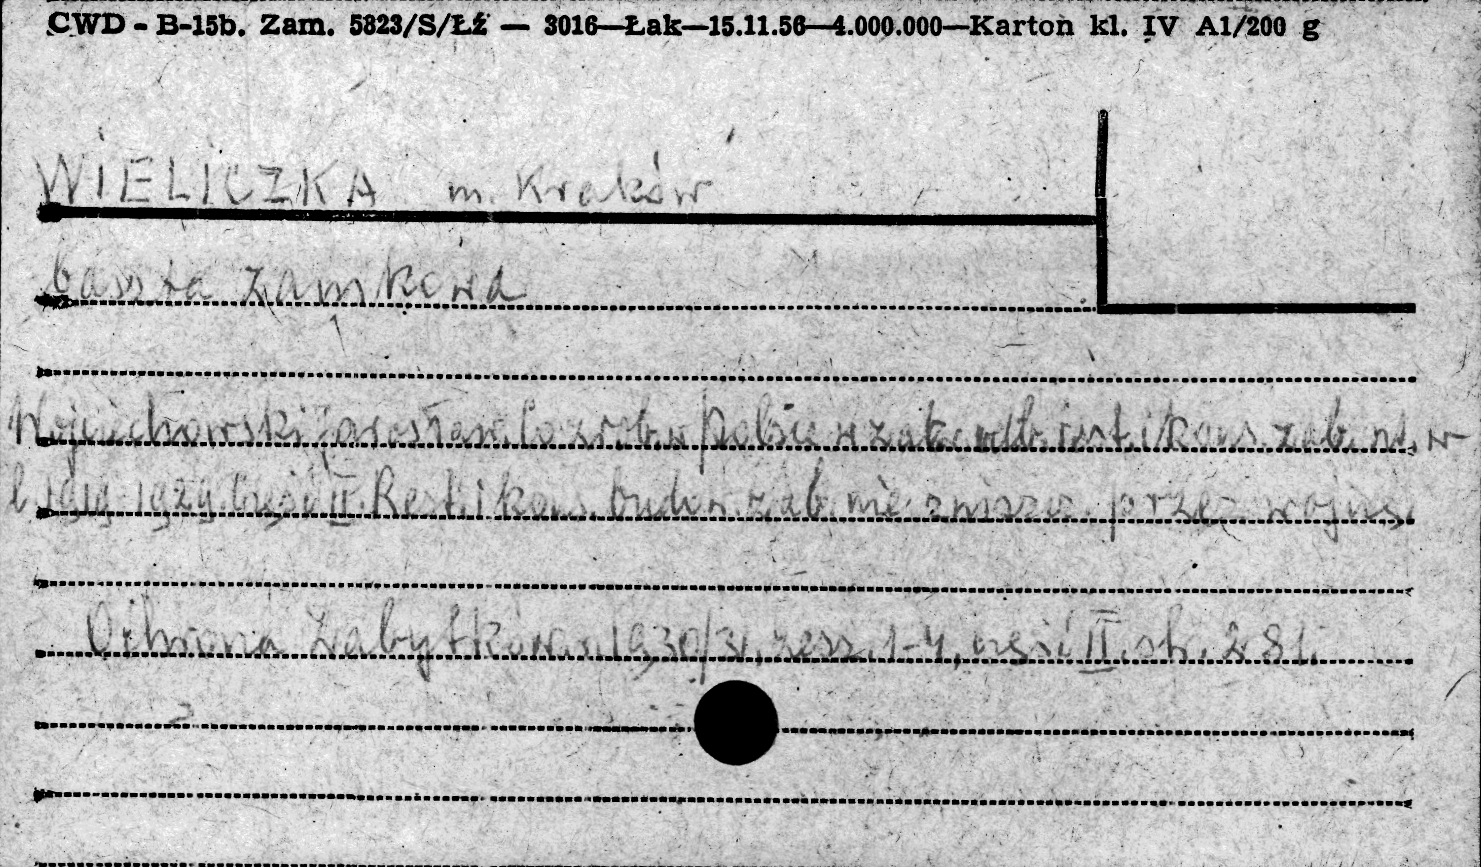 CWD - B-15b. Zam. 5823/S/Łź — 3016—Łak—15.11.56—4.000.000—Karton kl. IV A1/200 g
WIELICZKA m. Kraków
baszta zamkowa
Wojciechowski Jarosław. Co zrob. w Polsce w zak. odb. rest. i kons. zab. nt. w
l. 1919-1929. Część II. Rest. i kons. budow. zab. nie zniszcz. przez wojnę.
Ochrona Zabytków r. 1930/31, zesz. 1-4, część II. str. 281.